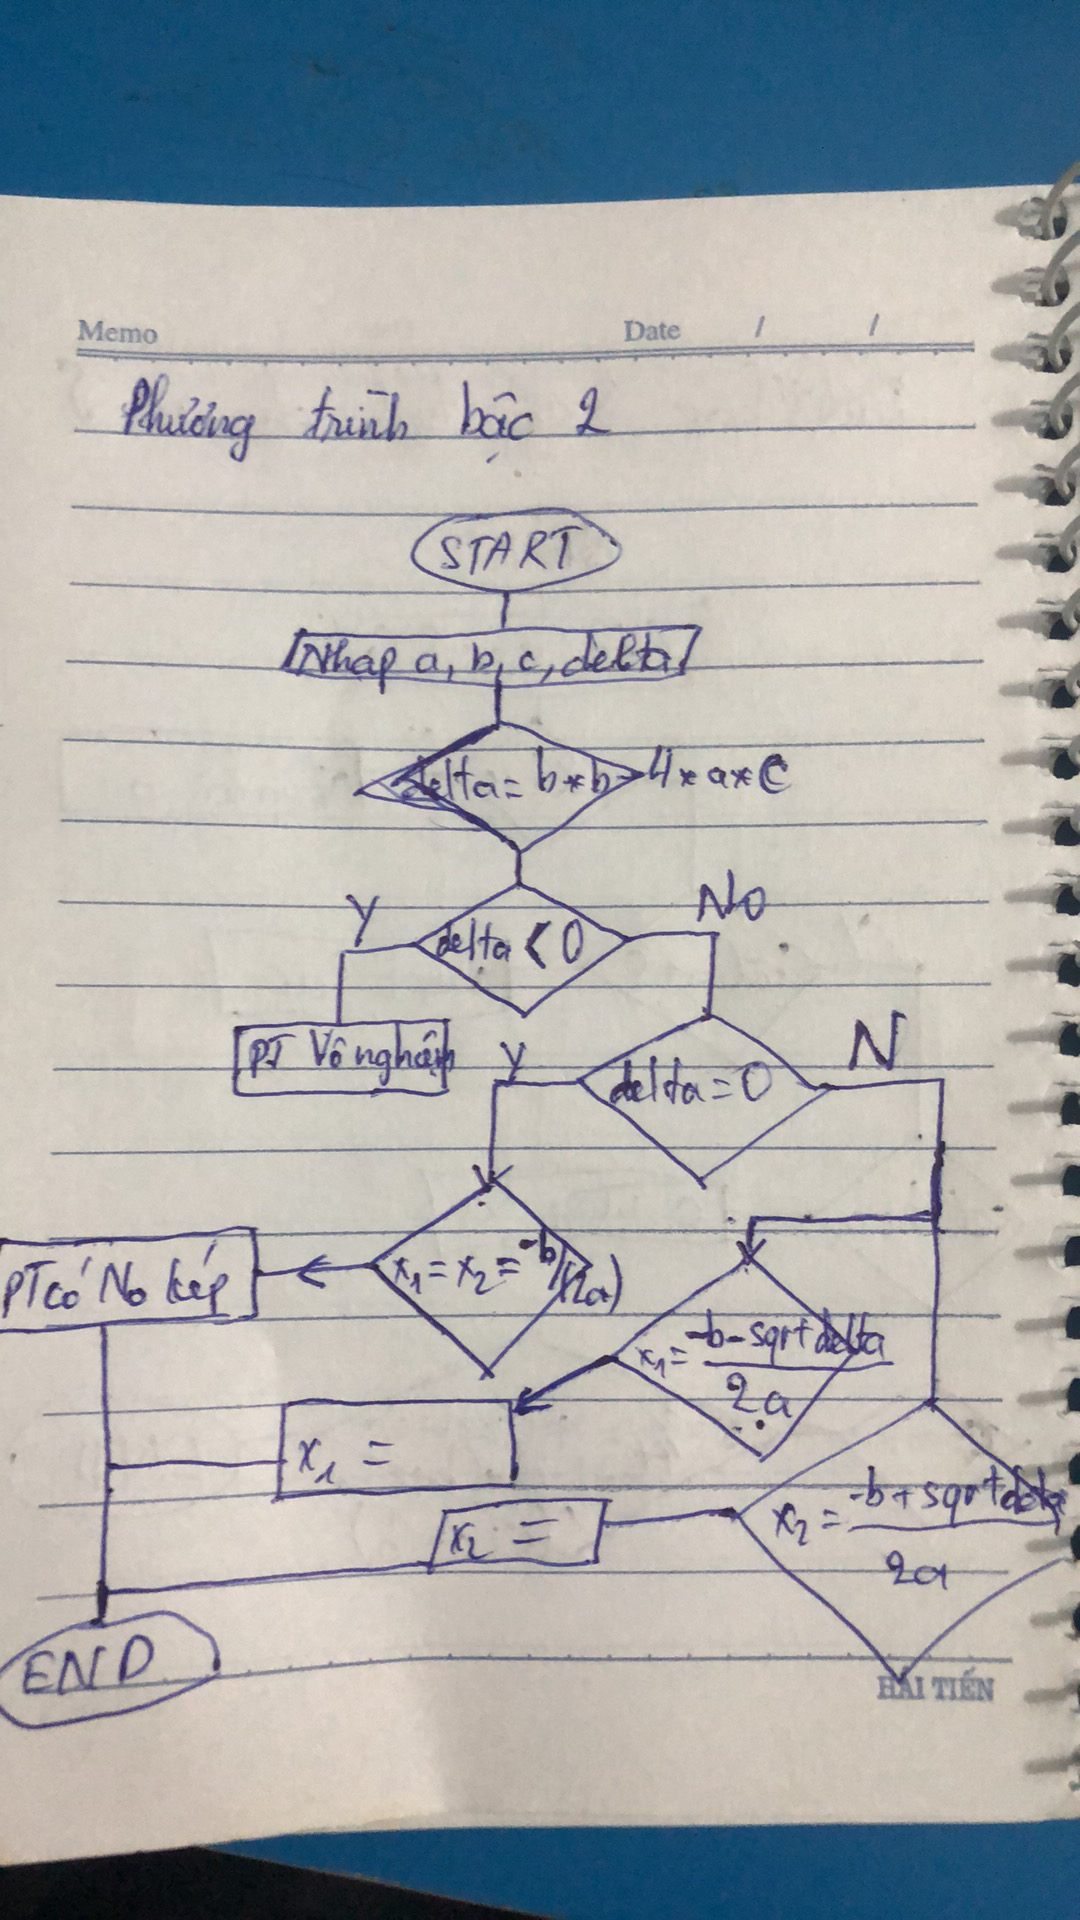 Memo Date / /
Phương trình bậc 2
START
Nhap a, b, c, delta
delta = b*b - 4*a*c
Y No
delta < 0
PT Vô nghiệm
Y N
delta = 0
x₁ = x₂ = -b/(2a)
PT có No kép
x₁ = -b - sqrt delta
2a
x₁ =
x₂ = -b + sqrt delta
2a
x₂ =
END
HẢI TIẾN